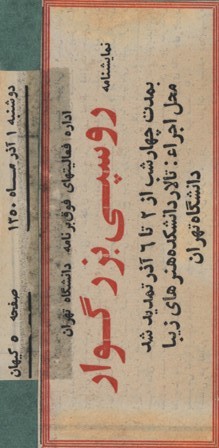 دوشنبه ۱ آذر ماه ۱۳۵۰
صفحه ۵ کیهان
اداره فعالیتهای فوق‌برنامه دانشگاه تهران
نمایشنامه
روسپی بزرگوار
بمدت چهار شب از ۲ تا ۶ آذر تمدید شد
محل اجراء : تالار دانشکده هنرهای زیبا
دانشگاه تهران